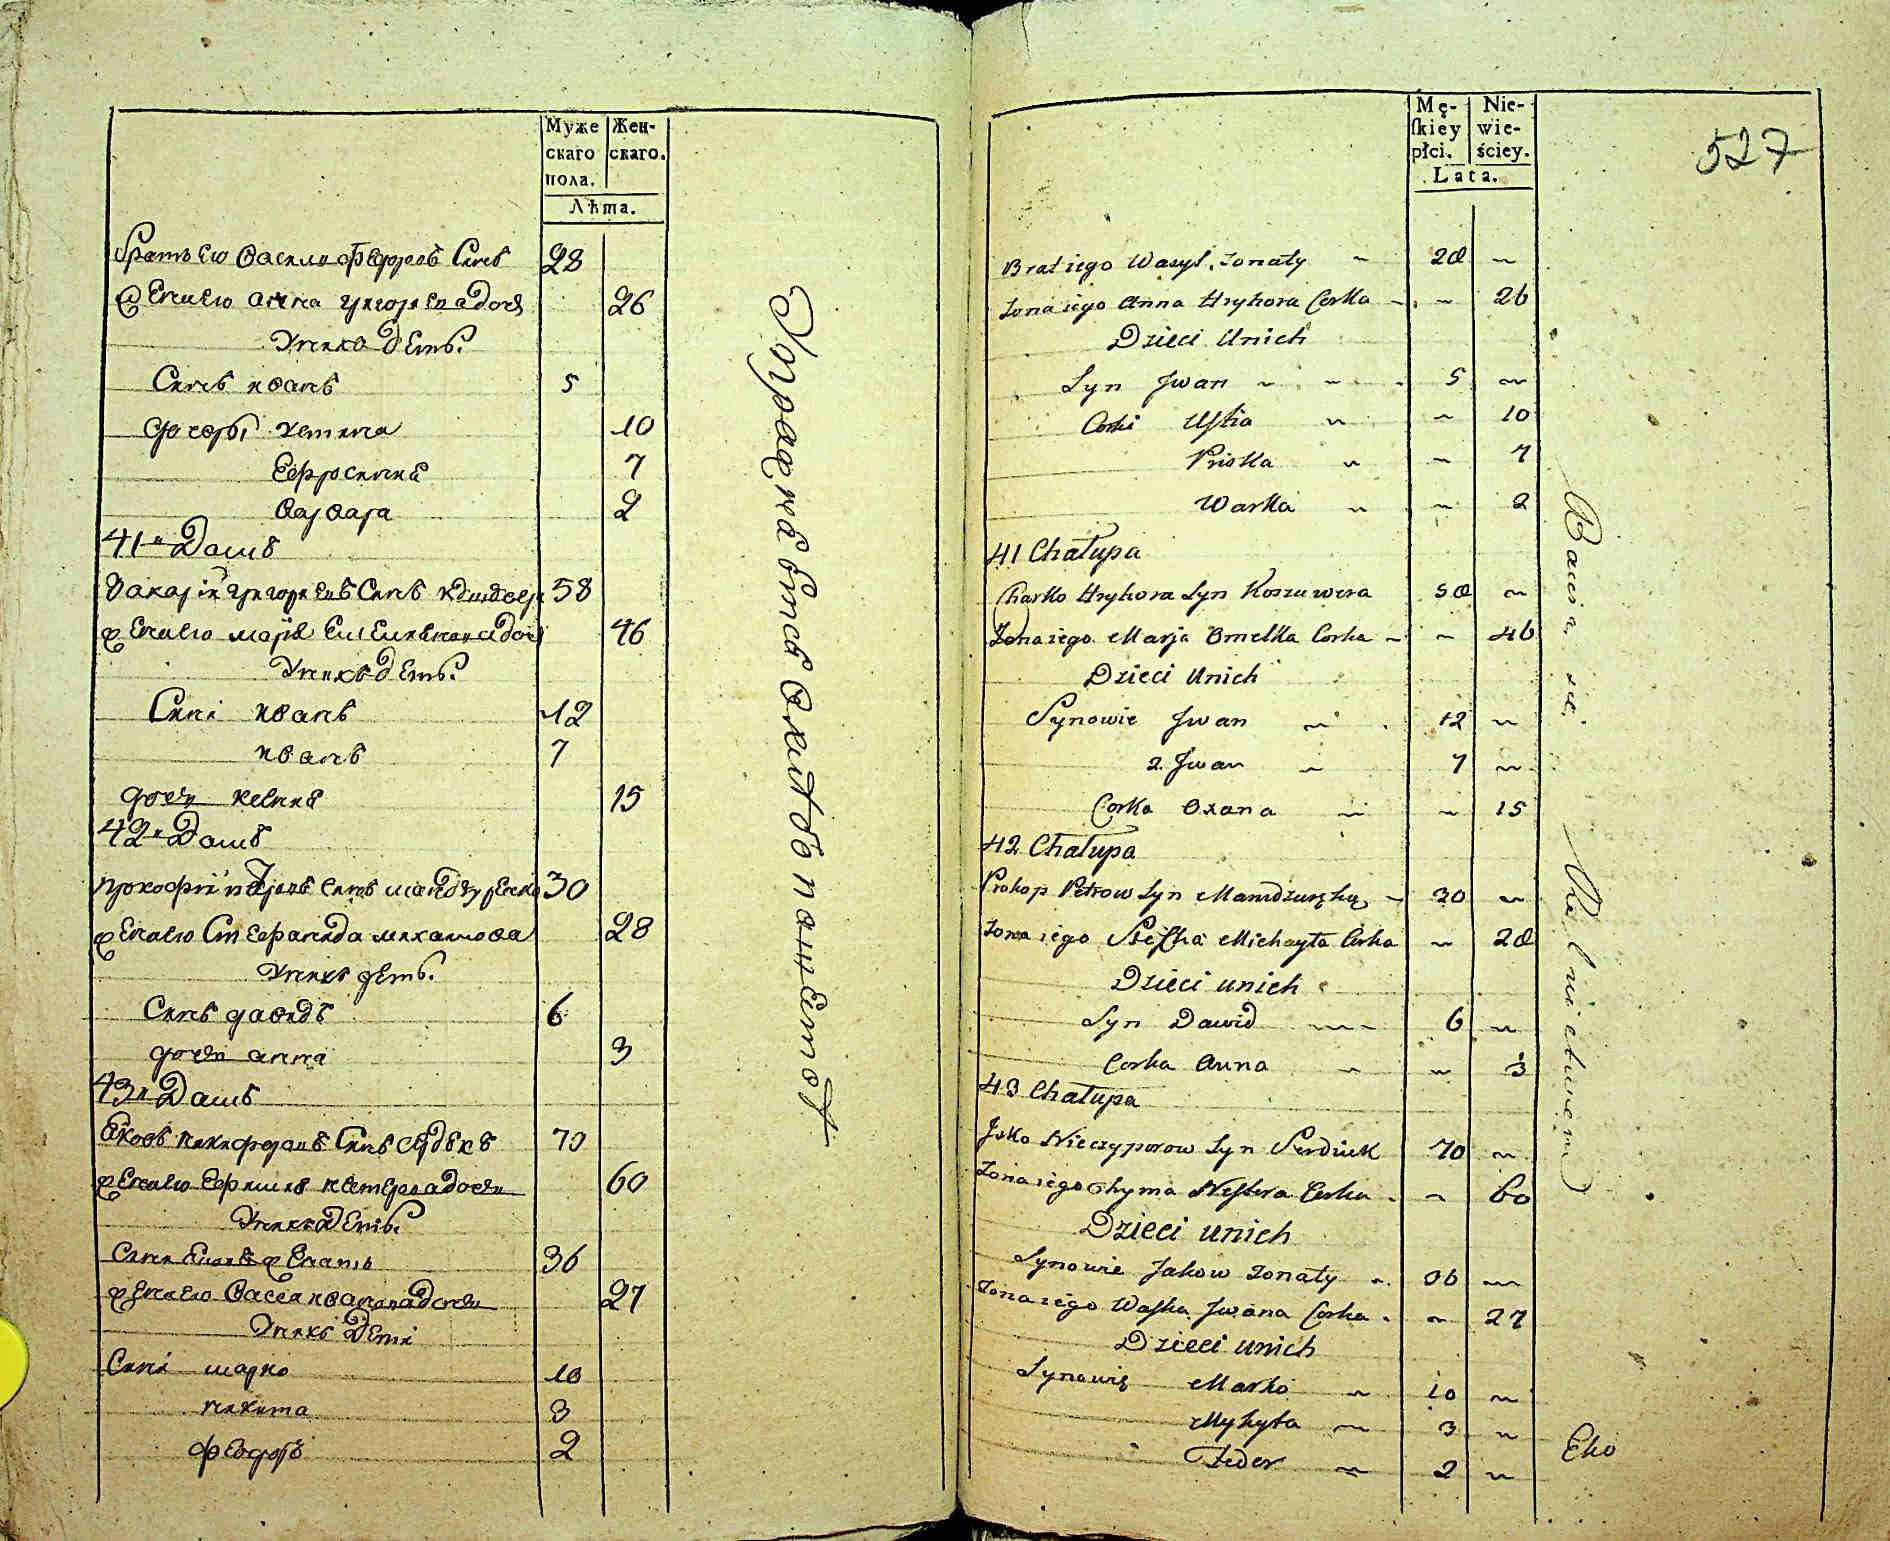 Муже
скаго
пола.
Жен-
скаго.
Лѣта.
братъ его Василь Федоровъ Синъ 28
жена его анна григорьева дочь 26
У нихъ дети.
Синъ иванъ 5
дочери 10
Ефросиния 7
Варвара 2
41й Домъ
Захарій григорьевъ Синъ 58
жена его марія Емельянова дочь 46
У нихъ дети.
Сини иванъ 12
иванъ 7
дочь ксения 15
42й Домъ
прокофий петровъ синъ 30
жена его Стефанида михайлова 28
У нихъ дети.
Синъ давидъ 6
дочь анна 3
43й Домъ
Яковъ никифоровъ Синъ Сердюкъ 70
жена его Ефимия нестерова дочь 60
У нихъ дети.
Синъ женатъ 36
жена его Васса иванова дочь 27
У нихъ Дети
Сини марко 10
никита 3
феодоръ 2
Mę-
skiey
płci.
Nie-
wie-
ściey.
Lata.
527
Brat iego Wasyl Żonaty ~ 28 ~
Żona iego Anna Hryhora Corka ~ ~ 26
Dzieci Unich
Syn Jwan ~ ~ 5 ~
Corki Ustia ~ ~ 10
Priska ~ ~ 7
Warka ~ ~ 2
41 Chałupa
Charko Hryhora Syn Koszuwera 58 ~
Żona iego Marja Omelka Corka ~ ~ 46
Dzieci Unich
Synowie Jwan ~ 12 ~
2. Jwan ~ 7 ~
Corka Oxana ~ ~ 15
42 Chałupa
Prokop Petrow Syn ~ 30 ~
Żona iego Stefka Michayła Corka ~ 28
Dzieci unich
Syn Dawid ~ ~ 6 ~
Corka Anna ~ ~ 3
43 Chałupa
Jsko Nieczyporow Syn Serdiuk 70 ~
Żona iego Chyma Nestera Corka ~ 60
Dzieci unich
Synowie Jakow Żonaty ~ 36 ~
Żona iego Waska Jwana Corka ~ 27
Dzieci unich
Synowie Marko ~ 10 ~
Mykyta ~ 3 ~
Fedor ~ 2 ~
Eko